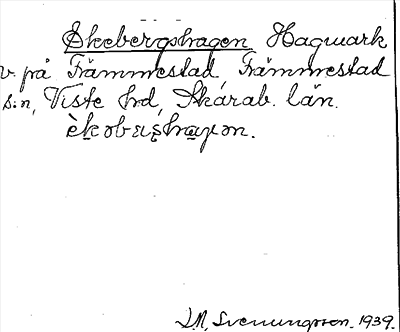 Ekebergshagen Hagmark
v på Främmestad, Främmestad
s:n, Viste hrd, Skarab. län.
J.M. Svenungsson. 1939.